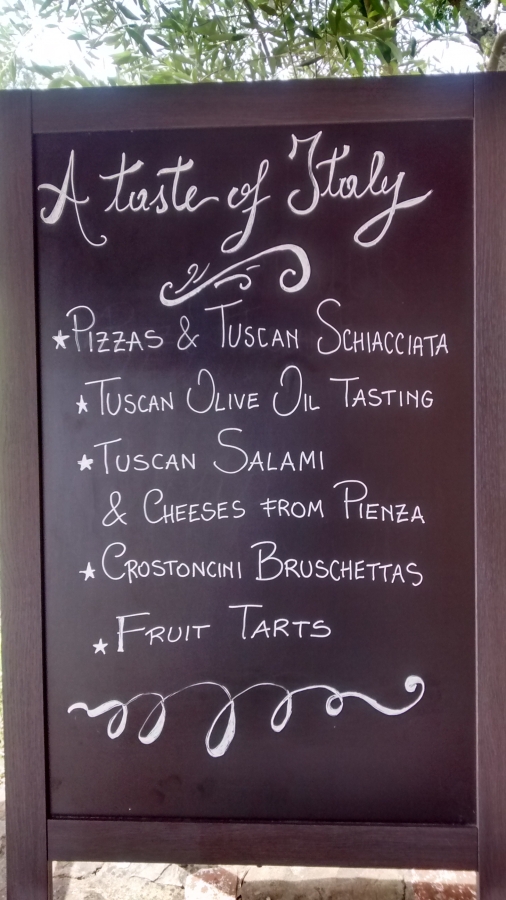 A taste of Italy
★ Pizzas & Tuscan Schiacciata
★ Tuscan Olive Oil Tasting
★ Tuscan Salami
& Cheeses from Pienza
★ Crostoncini Bruschettas
★ Fruit Tarts